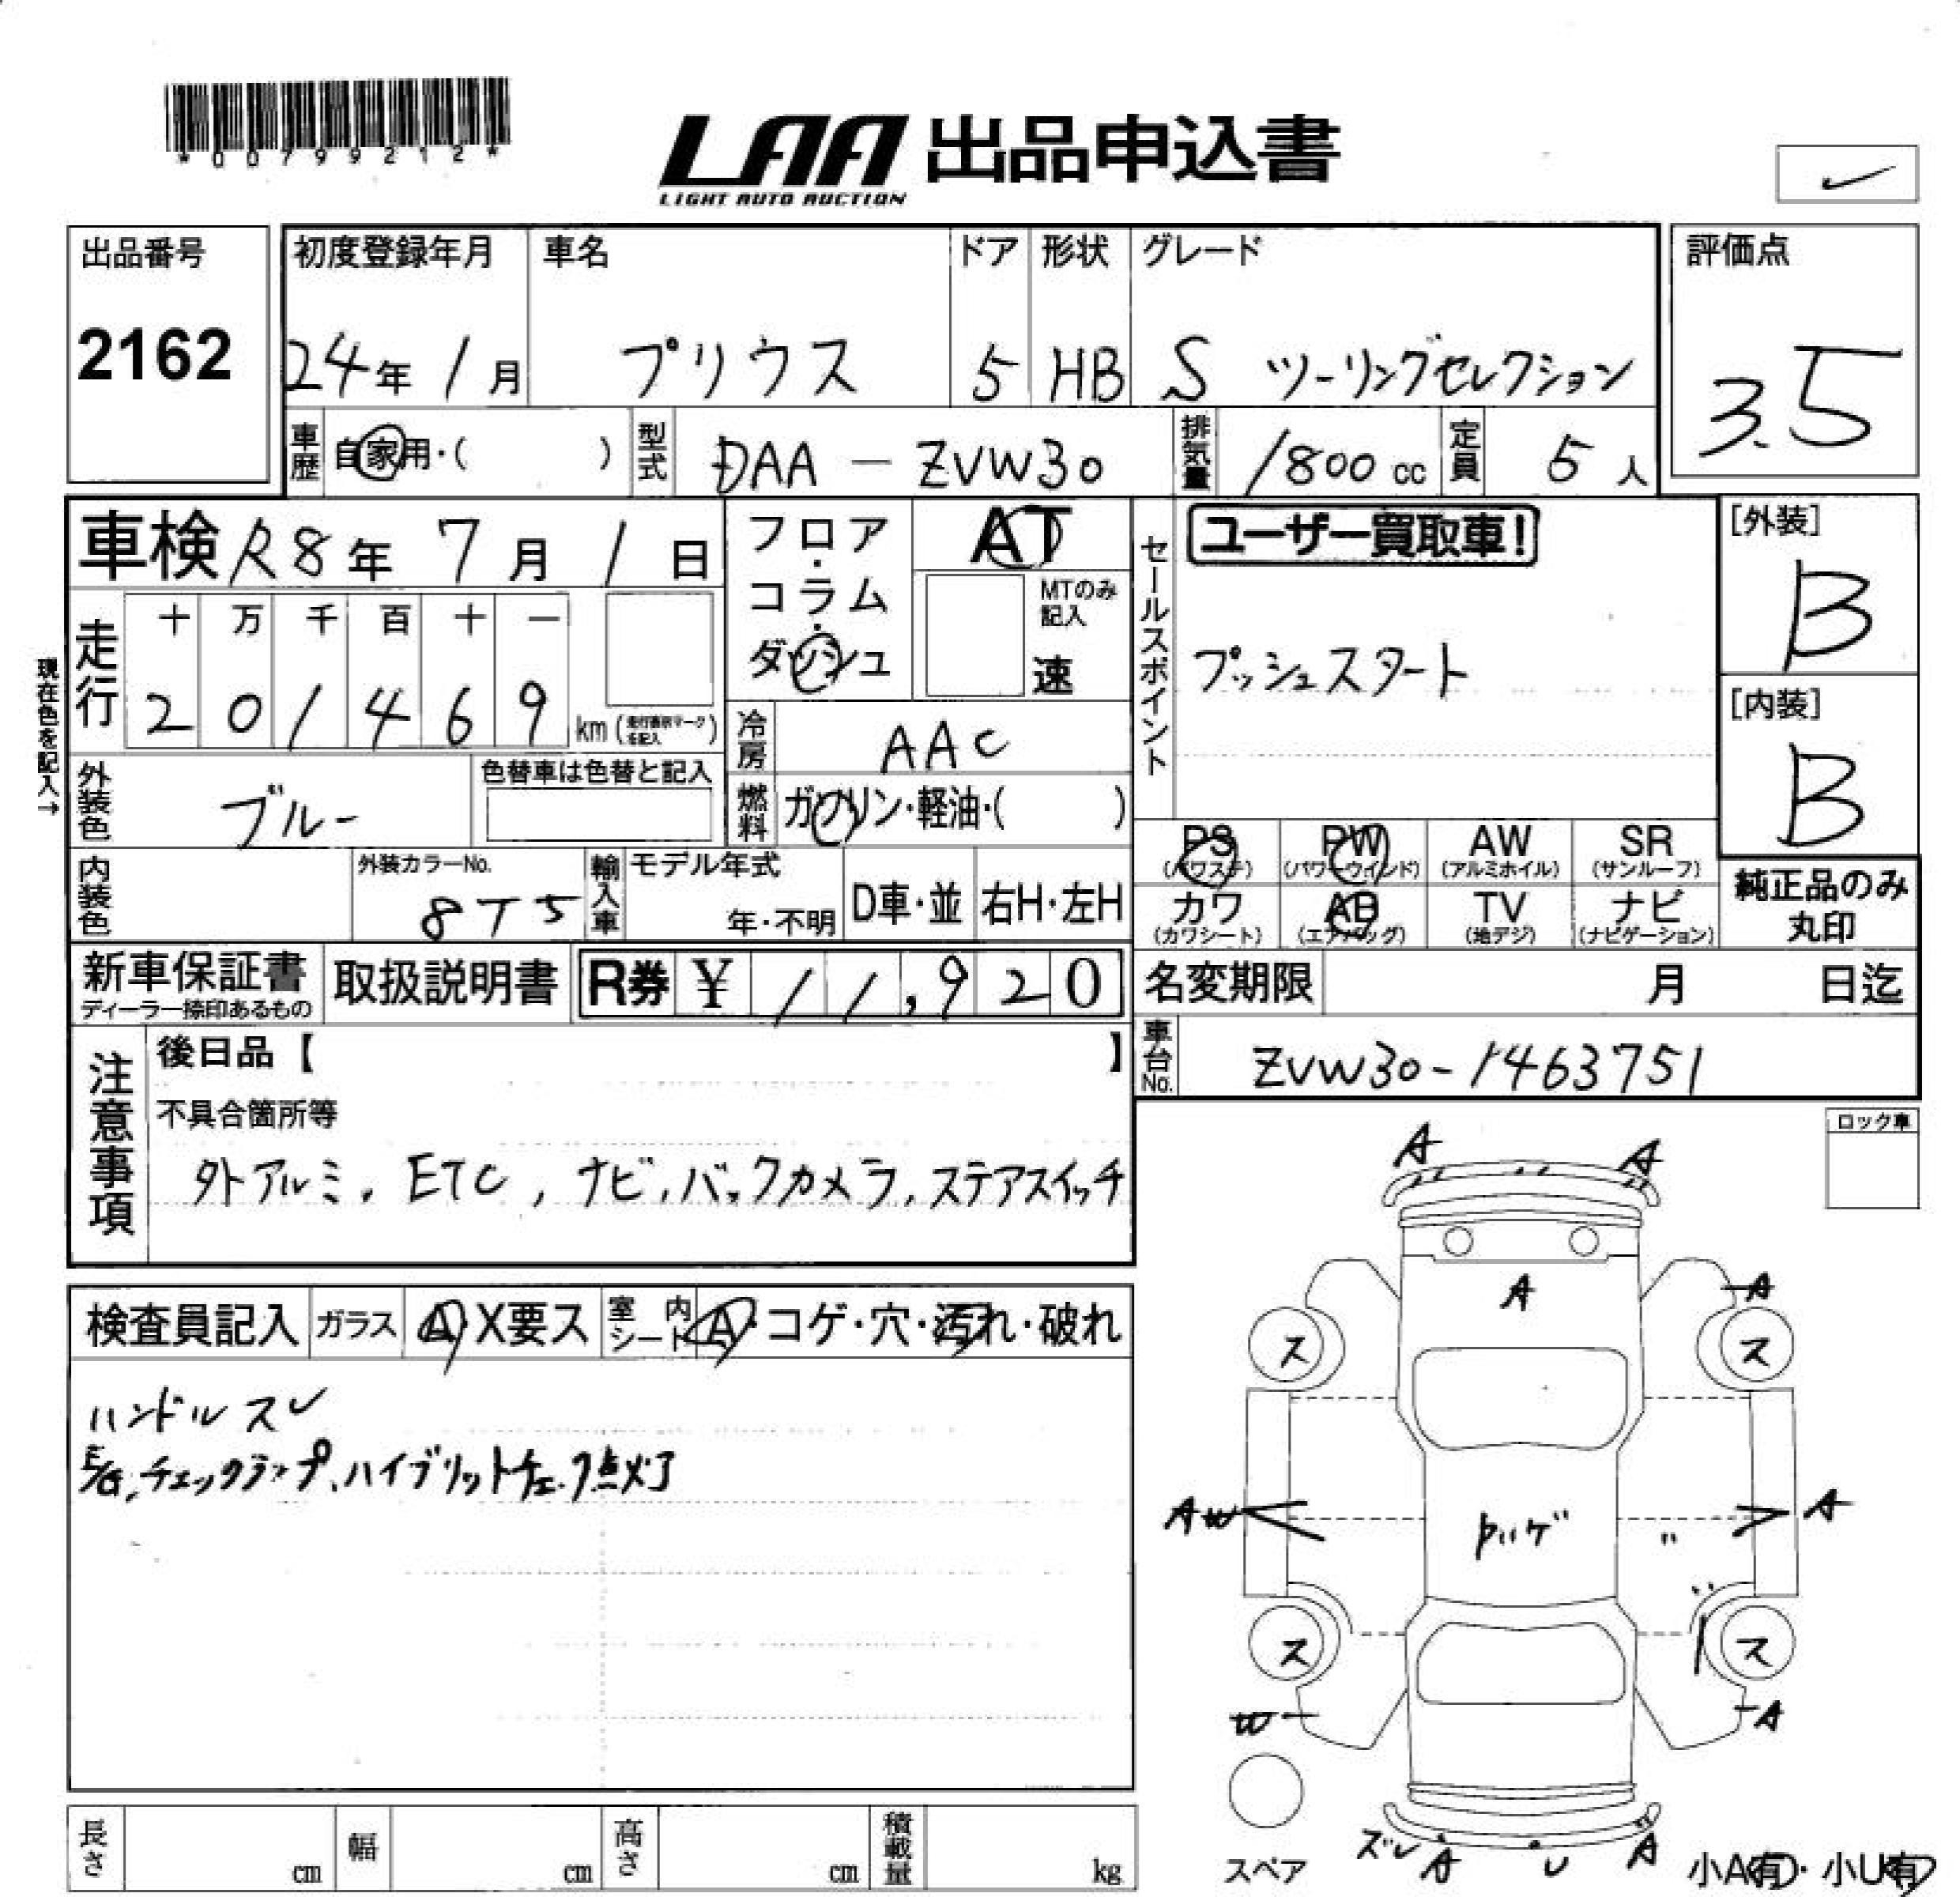 *00799212*
LAA 出品申込書
LIGHT AUTO AUCTION
出品番号
2162
初度登録年月
24年 1月
車名
プリウス
ドア
5
形状
HB
グレード
S ツーリングセレクション
評価点
3.5
車歴 自家用・( )
型式 DAA-ZVW30
排気量 1800cc
定員 5人
車検 R8年 7月 1日
現在色を記入→
走行
十 万 千 百 十 一
2 0 1 4 6 9 km
フロア・コラム・ダッシュ
AT
MTのみ記入
速
冷房 AAC
燃料 ガソリン・軽油・( )
セールスポイント
ユーザー買取車!
プッシュスタート
[外装]
B
[内装]
B
外装色 ブルー
色替車は色替と記入
内装色
外装カラーNo.
8T5
輸入車
モデル年式
年・不明
D車・並
右H・左H
PS (パワステ)
PW (パワーウインド)
AW (アルミホイル)
SR (サンルーフ)
カワ (カワシート)
AB (エアバッグ)
TV (地デジ)
ナビ (ナビゲーション)
純正品のみ丸印
新車保証書
ディーラー捺印あるもの
取扱説明書
R券 ¥ 11,920
名変期限 月 日迄
車台No. ZVW30-1463751
注意事項
後日品【 】
不具合箇所等
外アルミ, ETC, ナビ, バックカメラ, ステアスイッチ
ロック車
検査員記入
ガラス A・X要ス
室内シート A・コゲ・穴・汚れ・破れ
ハンドルスレ
E/G,チェックランプ、ハイブリットチェック点灯
A A
A
A
ス ス
AW A
ハゲ 〃
ス ス
W A
スペア
ズレ A U A
小A有・小U有
長さ cm
幅 cm
高さ cm
積載量 kg